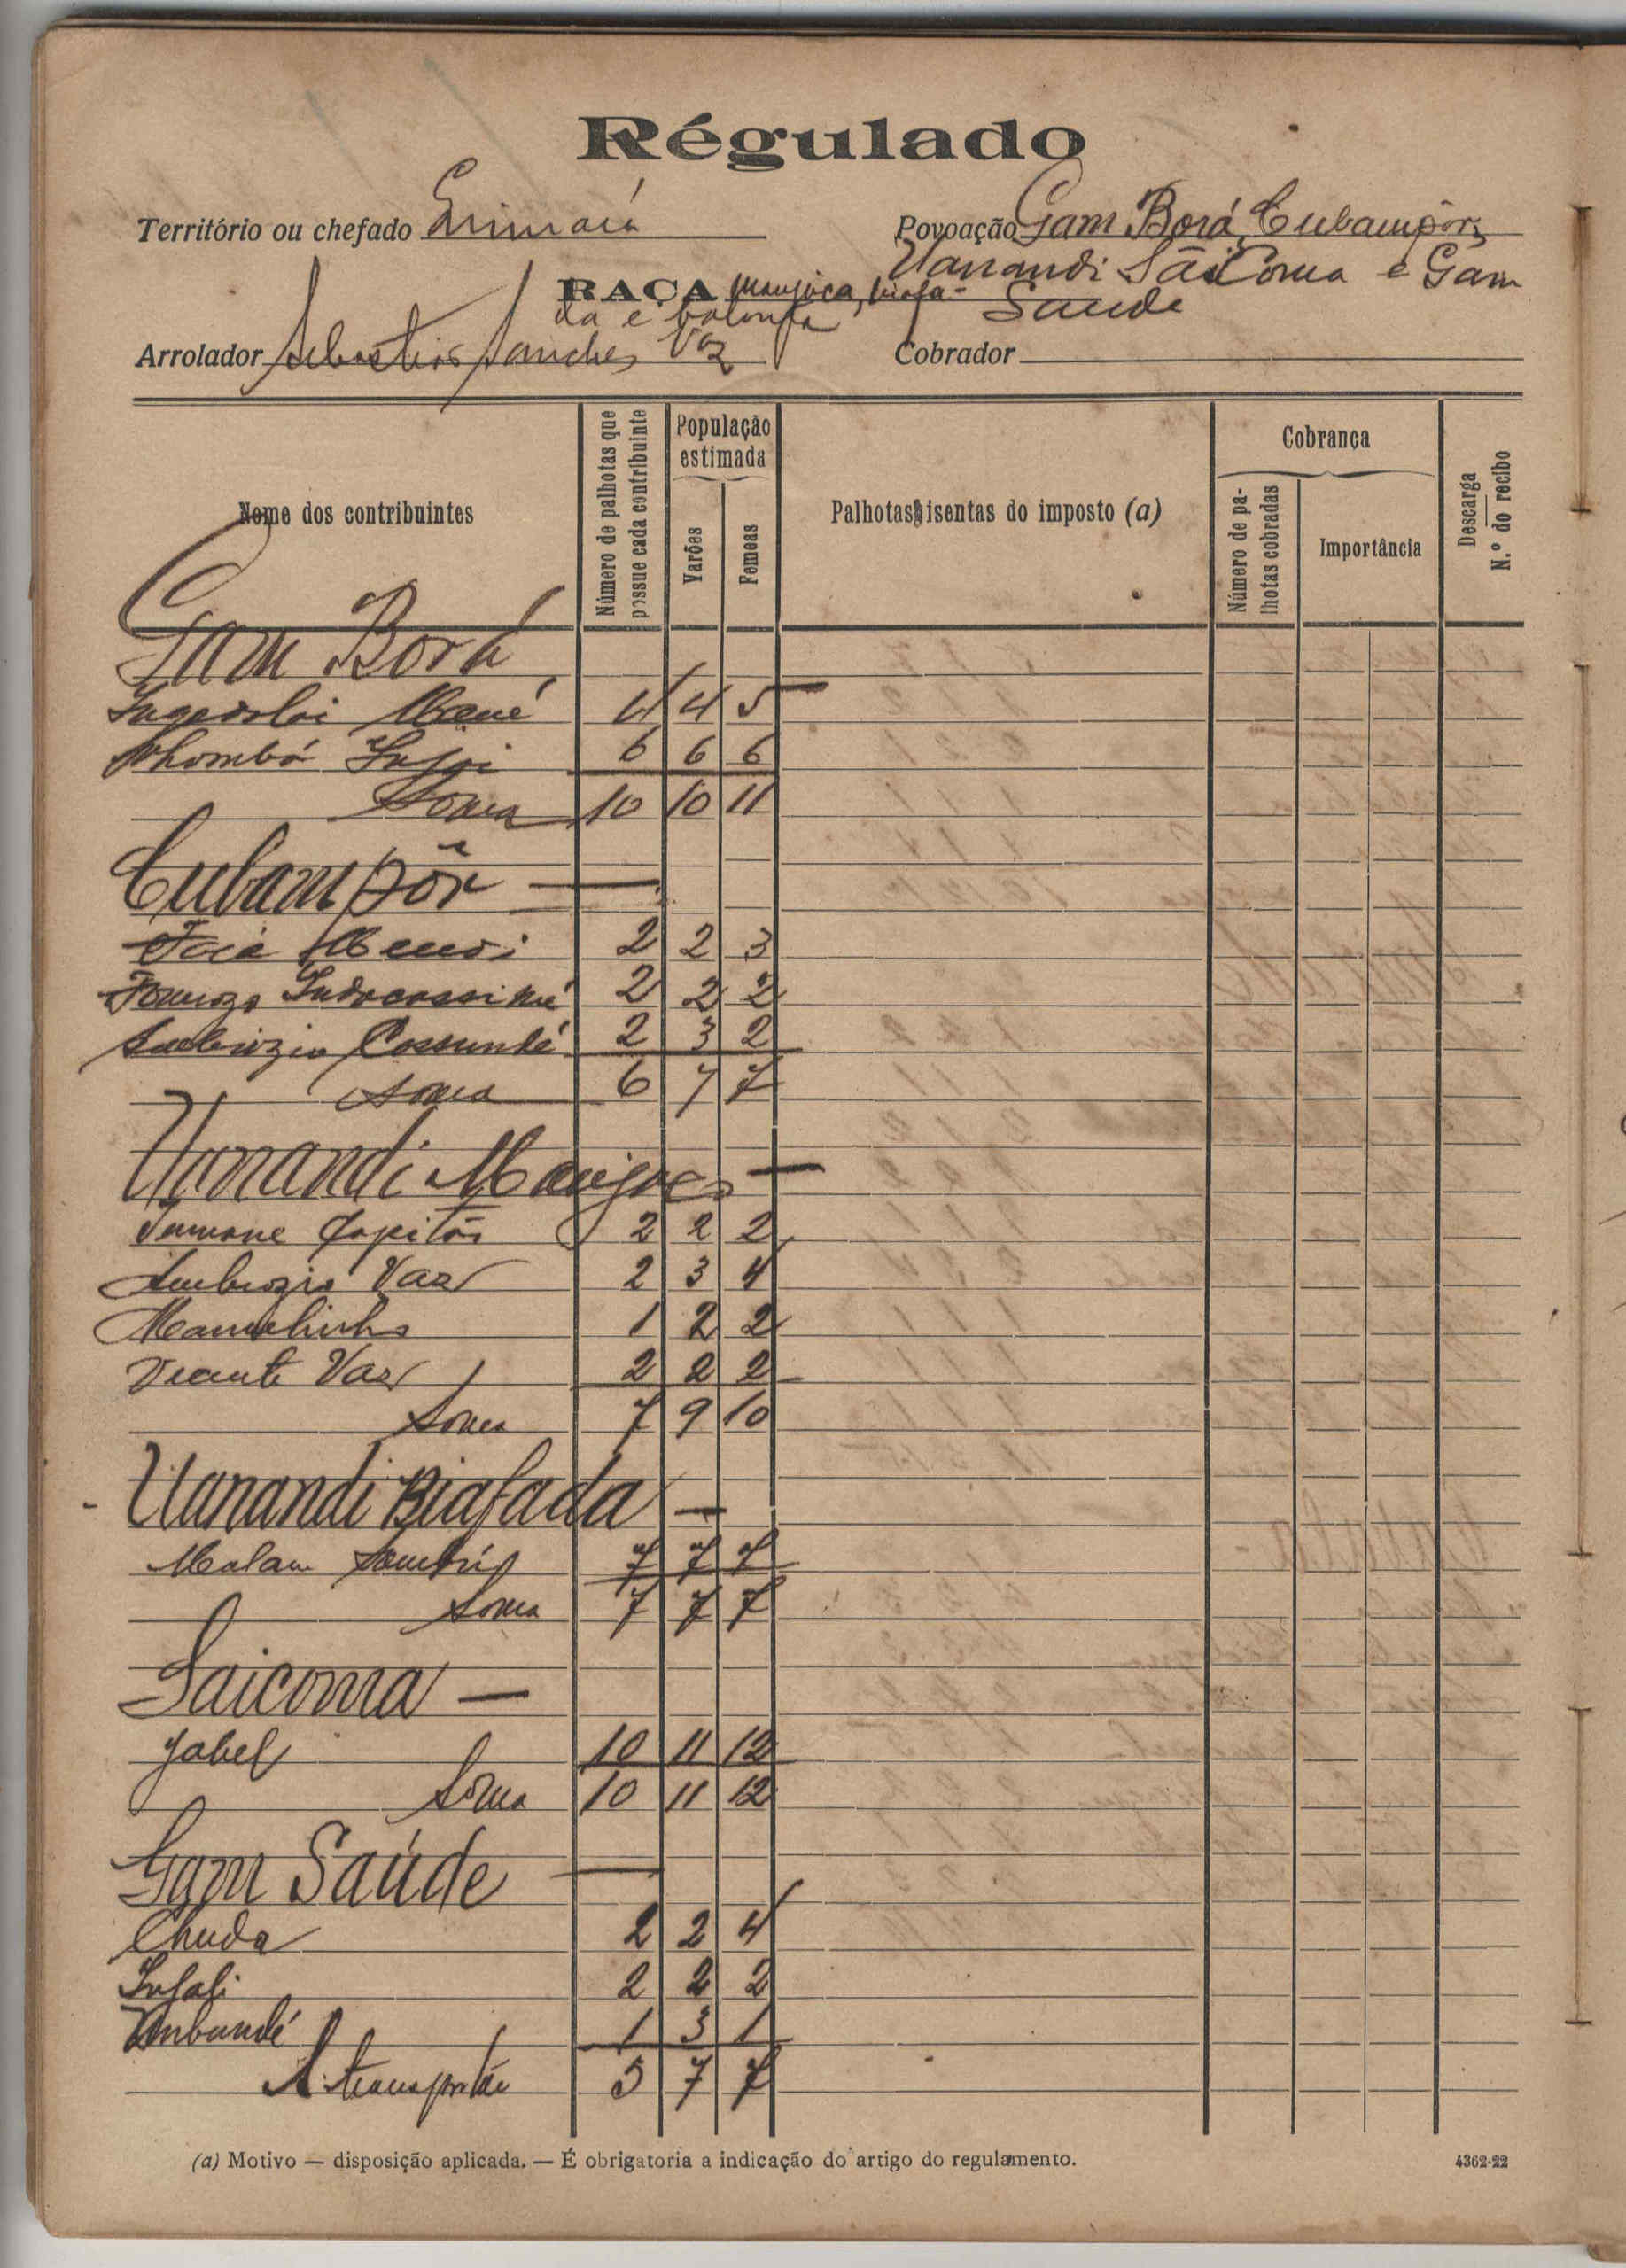 Régulado
Território ou chefado
Povoação Gam Borá, Cubampôr,
Uanandi Sãi Coma e Gam
Saude
RAÇA Manjaca, biafa-
da e balanta
Arrolador Sebastião Sanches Vaz
Cobrador
Nome dos contribuintes
Número de palhotas que possue cada contribuinte
População estimada
Varões
Femeas
Palhotas isentas do imposto (a)
Cobrança
Número de palhotas cobradas
Importância
Descarga
N.º do recibo
Gam Borá
Mané 4 4 5
6 6 6
Soma 10 10 11
Cubampôr —
2 2 3
2 2 2
Ambrozio Cossundé 2 3 2
Soma 6 7 7
Uanandi Manjaco —
Capitão 2 2 2
Ambrozio Vaz 2 3 4
Manuelinho 1 2 2
Vicente Vaz 2 2 2
Soma 7 9 10
Uanandi Biafada —
Malam 7 7 7
Soma 7 7 7
Saicoma —
Jabel 10 11 12
Soma 10 11 12
Gam Saúde —
Chuda 2 2 4
Infali 2 2 2
Umbundé 1 3 1
A transportar 5 7 7
(a) Motivo — disposição aplicada. — É obrigatoria a indicação do artigo do regulamento.
4362-22